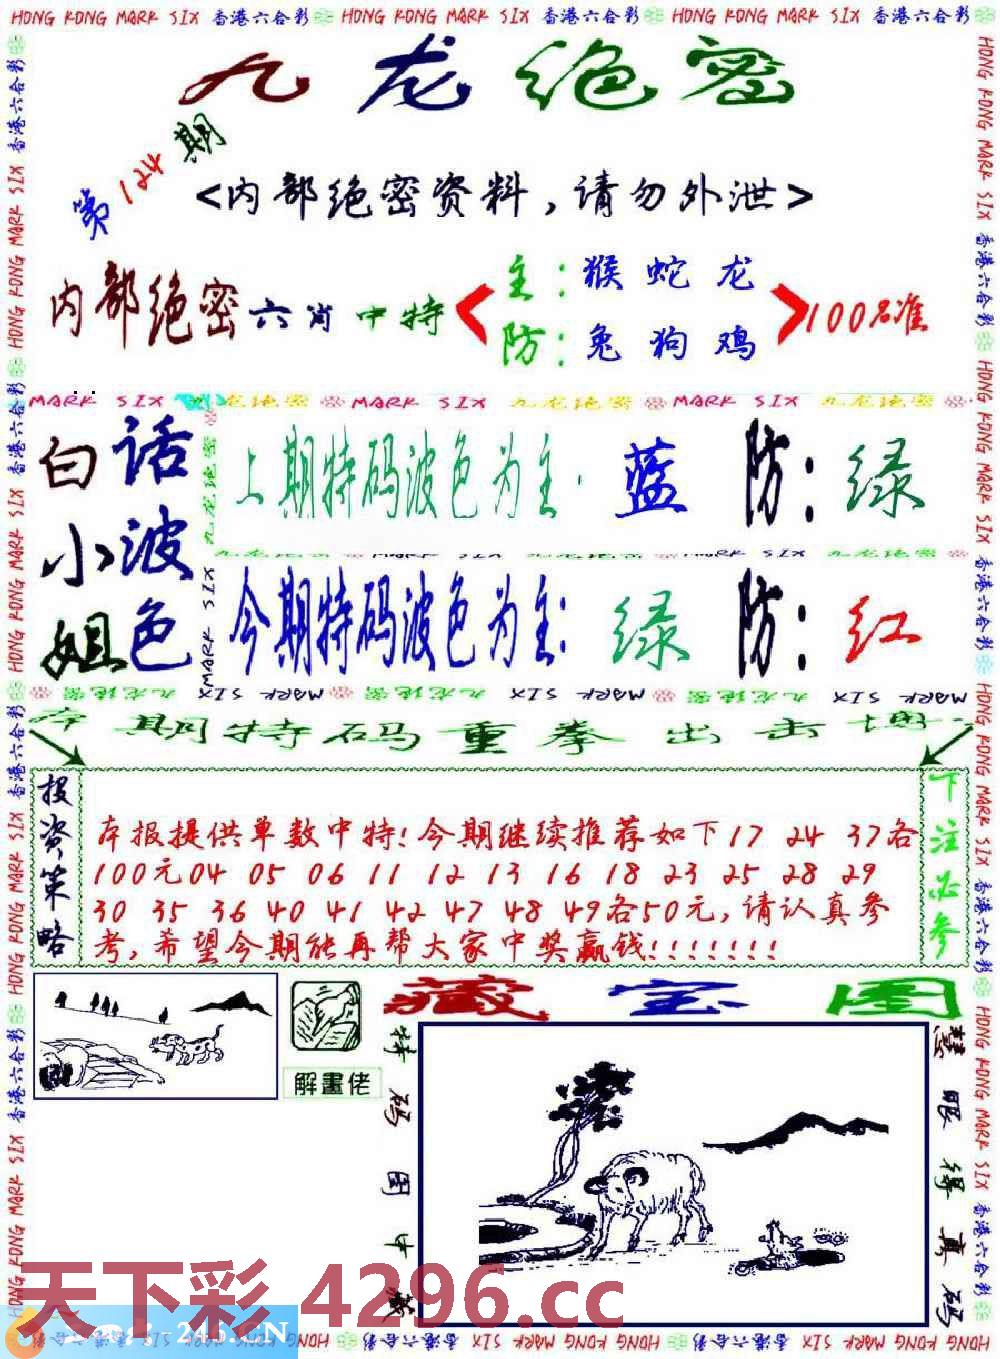 HONG KONG MARK SIX 香港六合彩 HONG KONG MARK SIX 香港六合彩 HONG KONG MARK SIX 香港六合彩
九龙绝密
第124期
<内部绝密资料，请勿外泄>
内部绝密六肖中特
主：猴 蛇 龙
防：兔 狗 鸡
100%准
MARK SIX 九龙绝密 MARK SIX 九龙绝密 MARK SIX 九龙绝密
白小姐
话波色
上期特码波色为主：蓝 防：绿
今期特码波色为主：绿 防：红
本期特码重拳出击
投资策略
本报提供单数中特！今期继续推荐如下17 24 37各
100元04 05 06 11 12 13 16 18 23 25 28 29
30 35 36 40 41 42 47 48 49各50元，请认真参
考，希望今期能再帮大家中奖赢钱！！！！！！！
下注必参
藏宝图
解畫佬
特码图中藏
慧眼得真码
天下彩 4296.cc
246.CN